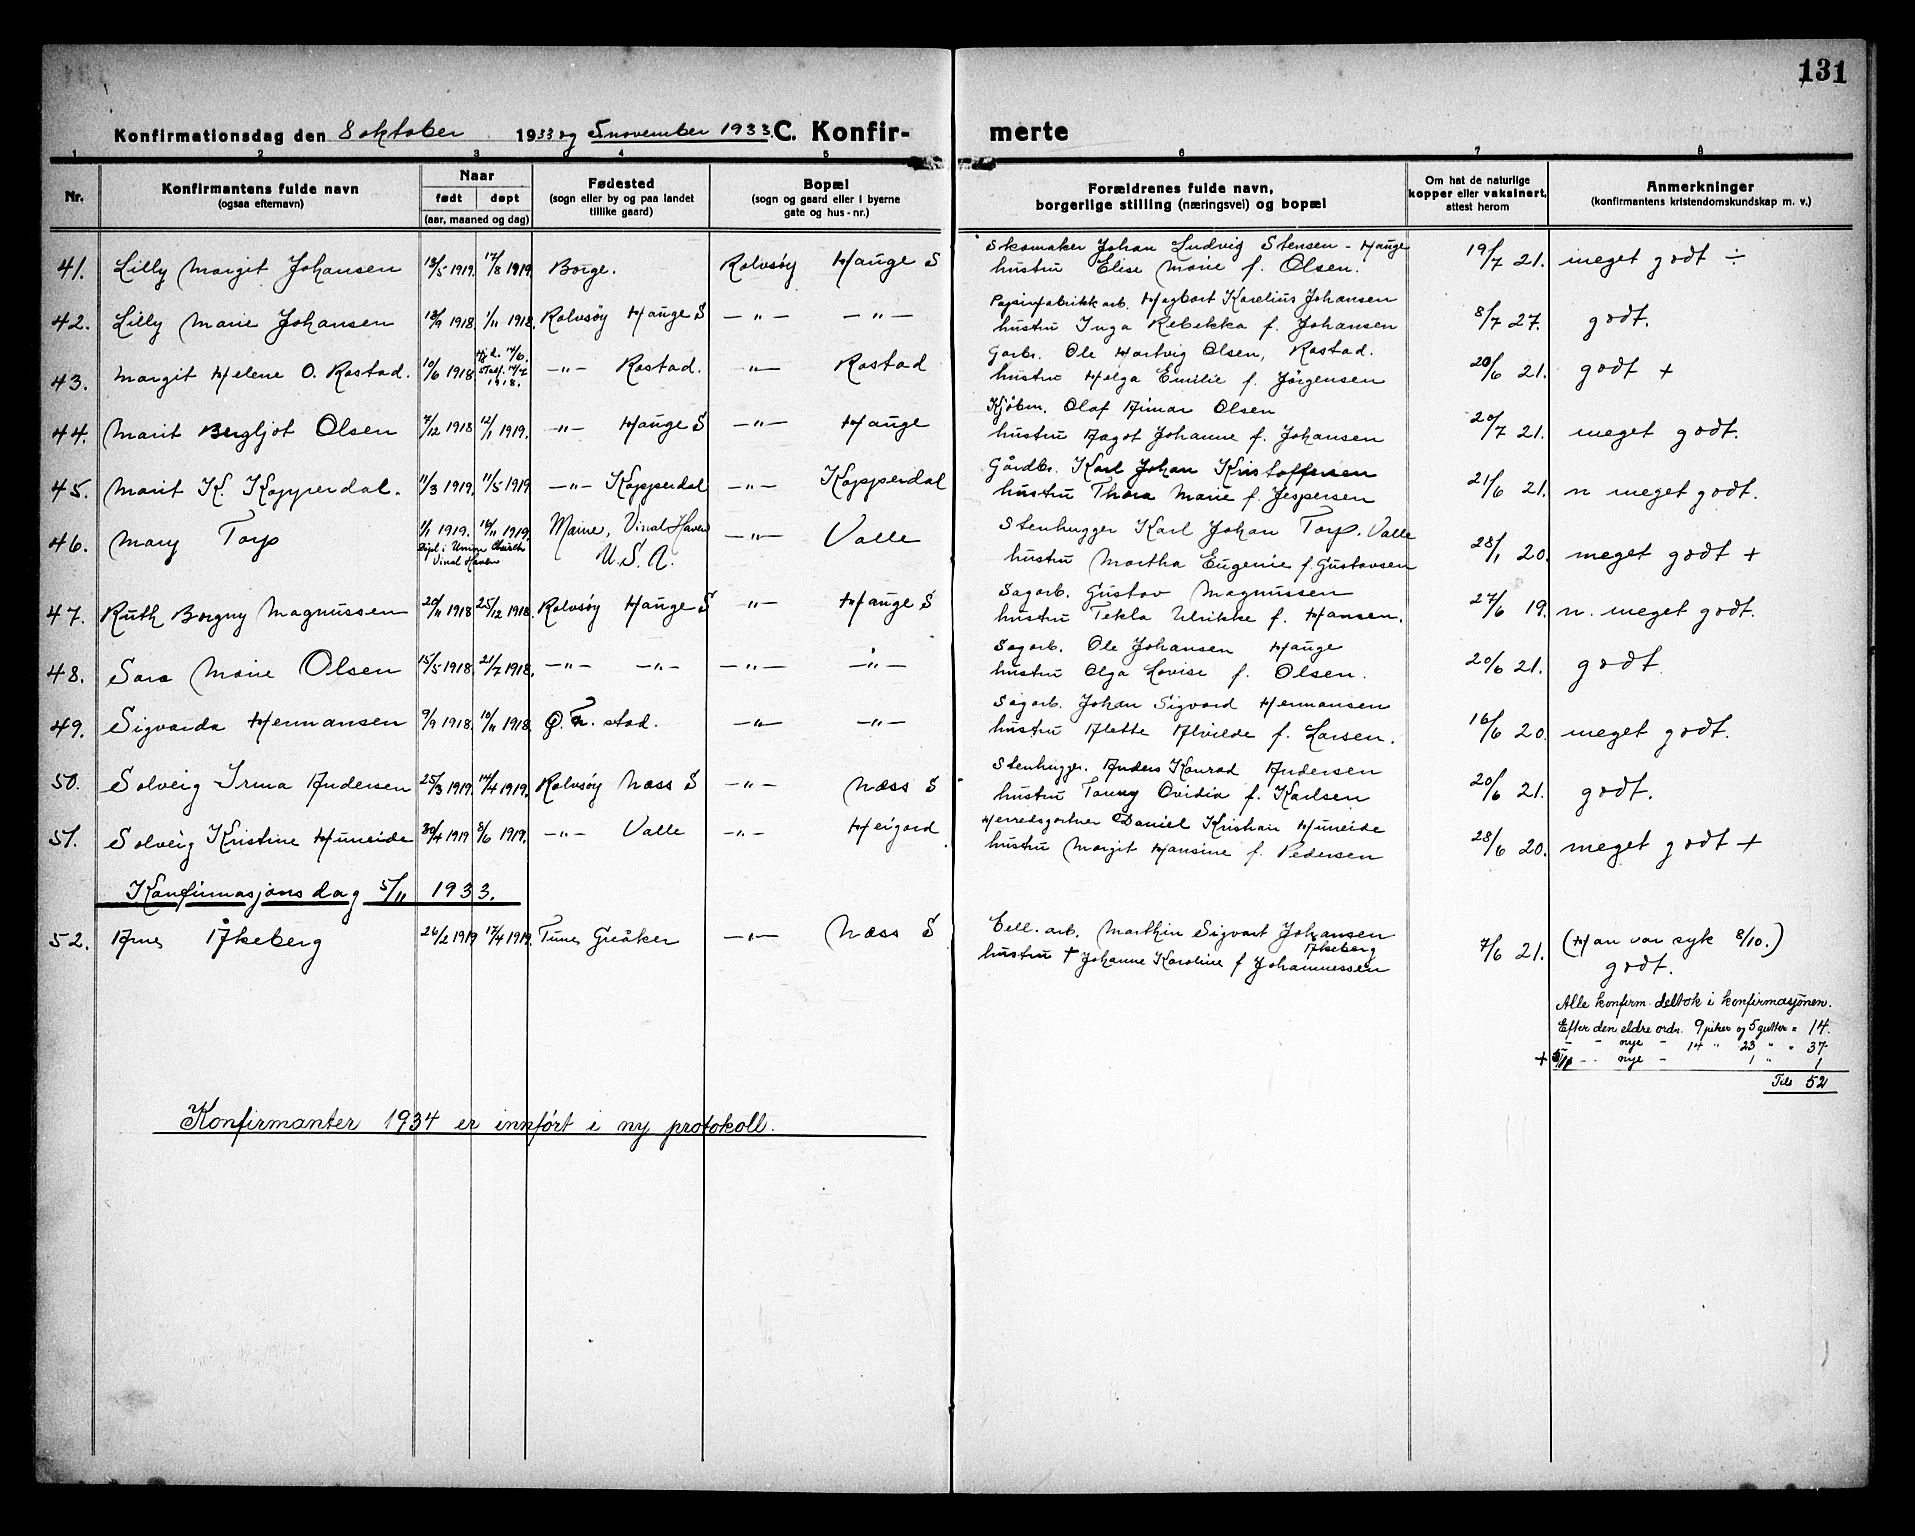 131
Konfirmationsdag den 8 oktober 1933 og 5 november 1933. C. Konfir- merte
1 2 3 4 5 6 7 8
Nr. Konfirmantens fulde navn (ogsaa efternavn) Naar født døpt (aar, maaned og dag) Fødested (sogn eller by og paa landet tillike gaard) Bopæl (sogn og gaard eller i byerne gate og hus-nr.) Forældrenes fulde navn, borgerlige stilling (næringsvei) og bopæl Om hat de naturlige kopper eller vaksinert, attest herom Anmerkninger (konfirmantens kristendomskundskap m. v.)
Skomaker Johan Ludvig Stensen - Hauge
41. Lilly Margit Johansen 13/5 1919. 17/8 1919 Borge. Rolvsøy Hauge S hustru Elise Marie f. Olsen. 19/7 21. meget godt ÷
Papirfabrikkarb. Hagbart Karelius Johansen
42. Lilly Marie Johansen 13/9 1918 1/11 1918. Rolvsøy Hauge S -„- -„- hustru Inga Rebekka f. Johansen 8/7 27. godt.
Hj.d. 14/6. Gårbr. Ole Hartvig Olsen, Rostad.
43. Margit Helene O. Rostad. 10/6 1918 Stadf. 14/7 1918. -„- Rostad. -„- Rostad hustru Helga Emilie f. Jørgensen 20/6 21. godt +
Kjøbm. Olaf Aimar Olsen
44. Marit Bergljot Olsen 7/12 1918 12/1 1919. -„- Hauge S -„- Hauge hustru Aagot Johanne f. Johansen 20/7 21. meget godt.
Gårdbr. Karl Johan Kristoffersen
45. Marit K. Kopperdal. 11/3 1919. 11/5 1919 -„- Kopperdal -„- Kopperdal hustru Thora Marie f. Jespersen 21/6 21. n meget godt.
Stenhugger Karl Johan Torp. Valle
46. Mary Torp 1/1 1919. 16/11 1919. Maine, Vinal Haven U.S.A. -„- Valle hustru Martha Eugenie f. Gustavsen 28/1 20. meget godt +
Døpt i Union Church Vinal Haven
Sagarb. Gustav Magnussen
47. Ruth Borgny Magnussen 20/11 1918 25/12 1918. Rolvsøy Hauge S -„- Hauge S hustru Tekla Ulrikke f. Hansen. 27/6 19. n. meget godt.
Sagarb. Ole Johansen Hauge
48. Sara Marie Olsen 15/5 1918. 21/7 1918. -„- -„- -„- -„- hustru Olga Lovise f. Olsen. 20/6 21. godt.
Sagarb. Johan Sigvard Hermansen
49. Sigvarda Hermansen 9/9 1918. 10/11 1918. Ø. Fr. stad. -„- -„- hustru Alette Alvilde f. Larsen. 16/6 20. meget godt.
Stenhugger. Anders Konrad Andersen
50. Solveig Irma Andersen 25/3 1919. 14/4 1919. Rolvsøy Næss S -„- Næss S hustru Fanny Ovidia f. Karlsen 20/6 21. godt.
Herredsgartner Daniel Kristian Huneide
51. Solveig Kristine Huneide 30/4 1919 8/6 1919. -„- Valle -„- Heigard hustru Margit Hansine f. Pedersen 28/6 20. meget godt +
Konfirmasjonsdag 5/11 1933.
Cell. arb. Marthin Sigvart Johansen Åkeberg
52. Arne Åkeberg 26/2 1919 17/4 1919. Tune Greåker -„- Næss S hustru † Johanne Karoline f Johannessen 7/6 21. (Han var syk 8/10.)
godt.
Alle konfirm. deltok i konfirmasjonen.
Efter den eldre ordn. 9 piker og 5 gutter = 14.
- - nye - 14 " 23 " " 37
+ 5/11 - - nye - 1 " 1
Tils 52
Konfirmanter 1934 er innført i ny protokoll.